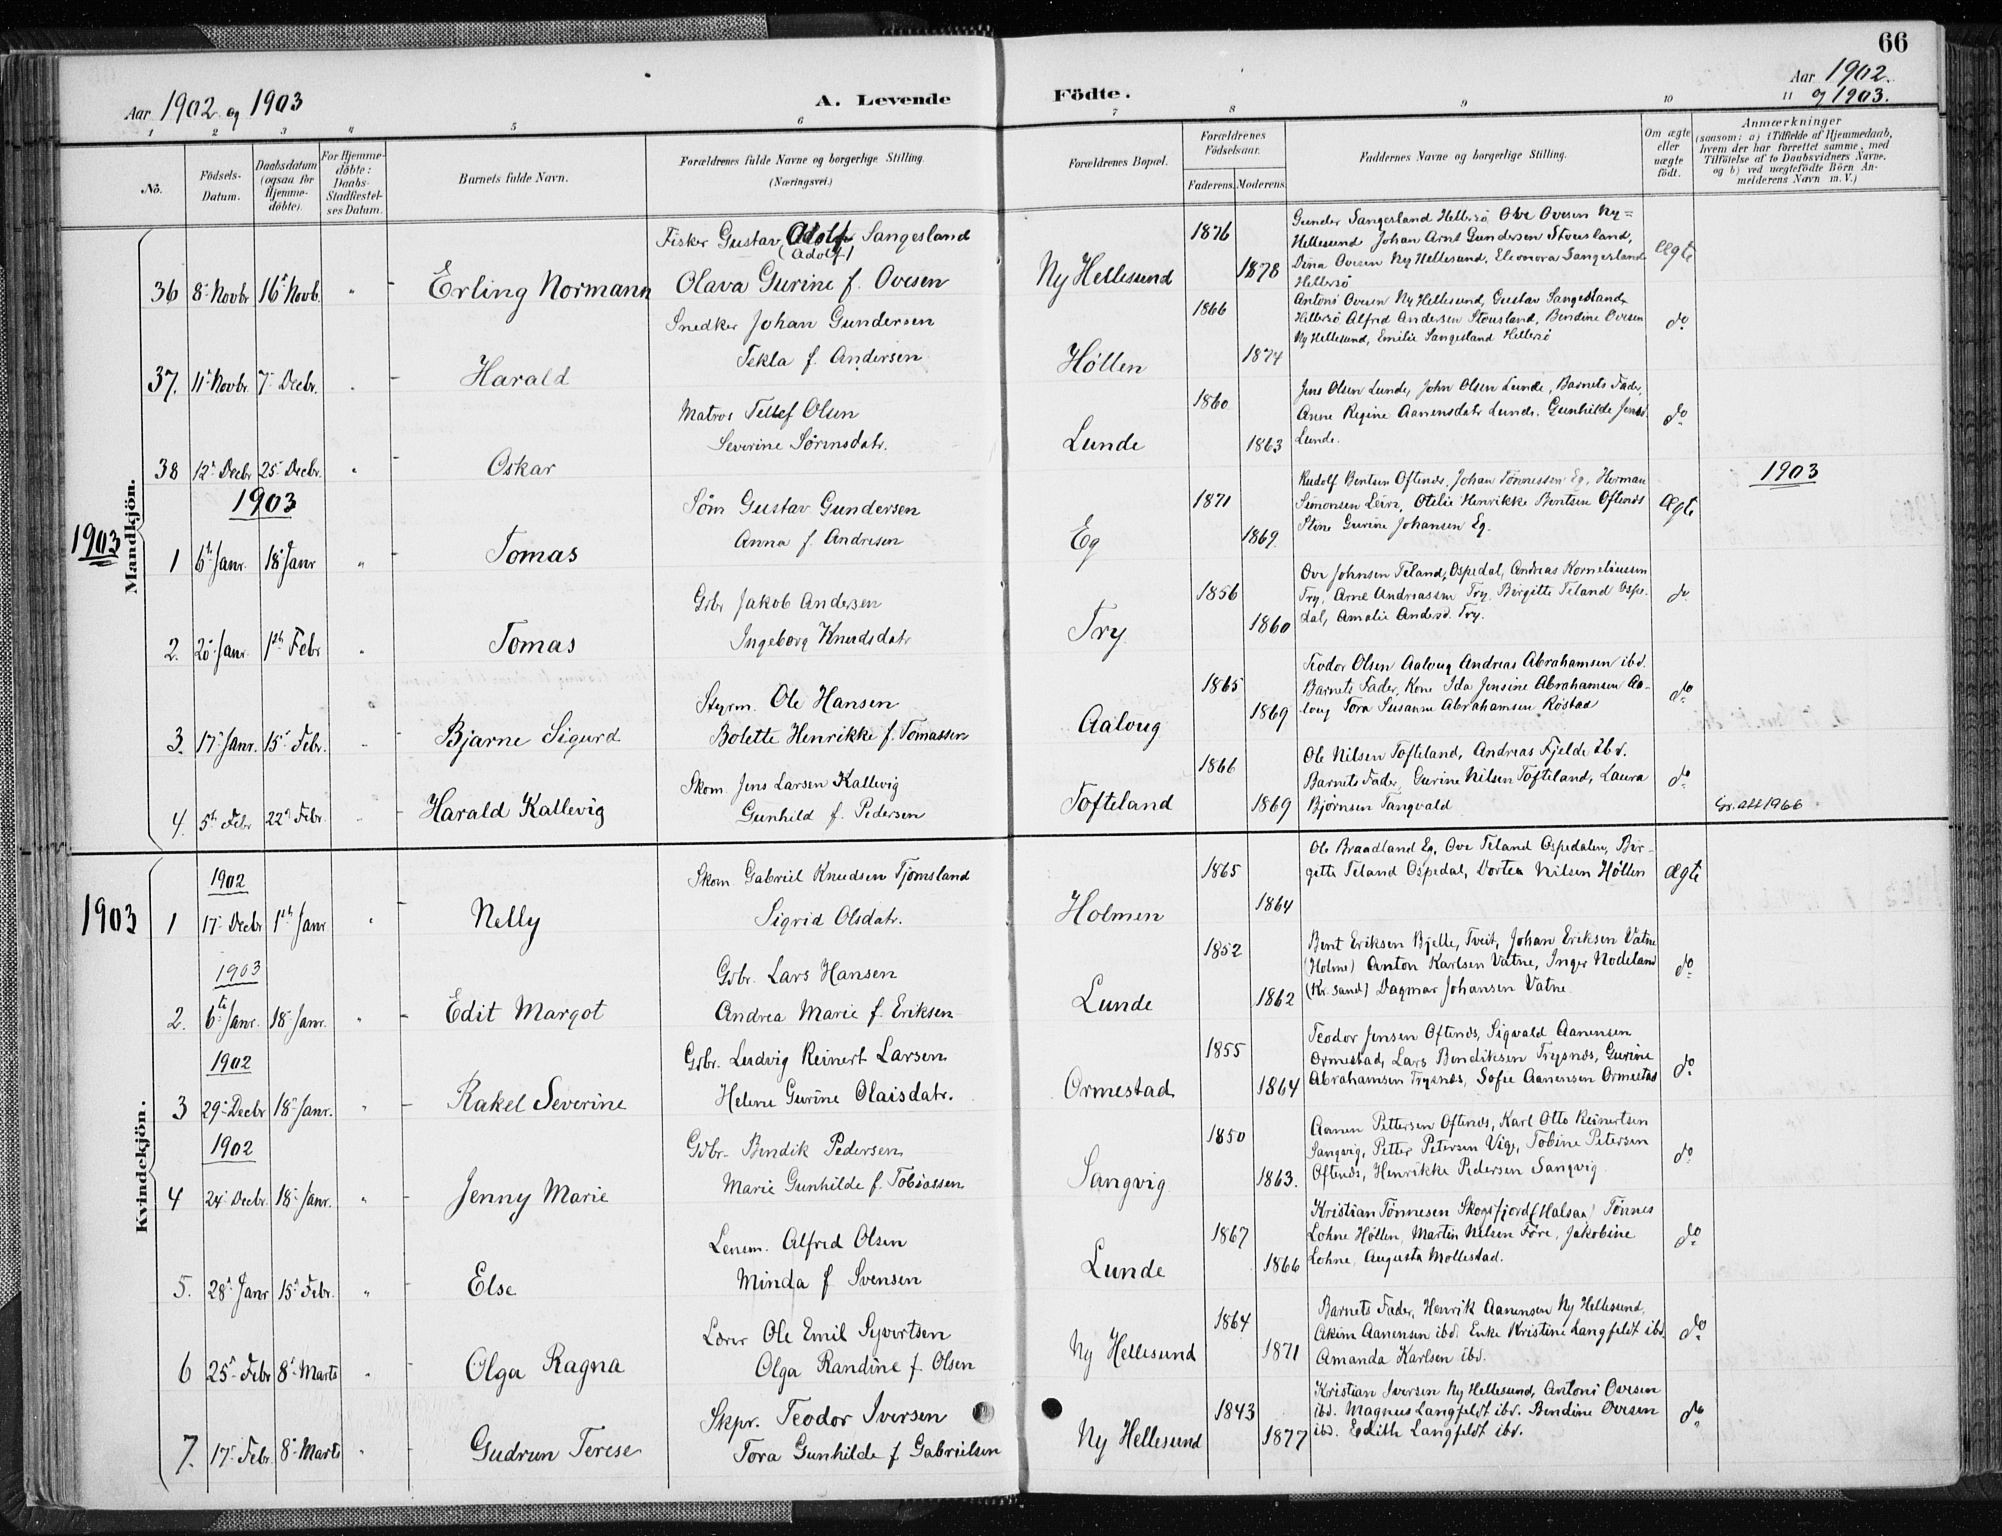 66
Aar 1902 og 1903
A. Levende Födte.
Aar 1902.
og 1903.
1 2 3 4 5 6 7 8 9 10 11
No.
Födsels-Datum.
Daabsdatum (ogsaa for Hjemme-döbte).
For Hjemme-döbte: Daabs-Stadfæstel-ses Datum.
Barnets fulde Navn.
Forældrenes fulde Navne og borgerlige Stilling. (Næringsvei.)
Forældrenes Bopæl.
Forældrenes Födselsaar.
Faderens. Moderens.
Faddernes Navne og borgerlige Stilling.
Om ægte eller uægte födt.
Anmærkninger
(saasom: a) i Tilfælde af Hjemmedaab, hvem der har forrettet samme, med Tilföielse af to Daabsvidners Navne, og b) ved uægtefödte Börn An-melderens Navn m. V.)
Mandkjön.
36 8' Novbr 16' Novb. " Erling Normann
Fisker Gustav Adolf Sangesland
(Adolf)
Olava Gurine f. Ovesen
Ny Hellesund
1876 1878
Gunder Sangesland Hellersö Ove Ovesen Ny=
Hellesund Johan Arnt Gundersen Stousland,
Dina Ovesen Ny Hellesund, Eleonora Sangesland
Hellersö
Ægte
37. 11' Novbr. 7' Decbr. " Harald
Snedker Johan Gundersen
Tekla f. Andersen
Höllen
1866 1874
Antoni Ovesen Ny Hellesund, Gustav Sangesland,
Hellersö Alfred Andersen Stousland, Bendine Ovesen
Ny Hellesund, Emilie Sangesland Hellersö
do
38 12' Decbr 25' Decbr. " Oskar
Matros Tellef Olsen
Severine Sörensdatr.
Lunde
1860 1863
Jens Olsen Lunde, John Olsen Lunde, Barnets Fader,
Anne Regine Aanensdatr Lunde. Gunhilde Jensd
Lunde.
do
1903
1903
1903
1 6' Janr. 18' Janr " Tomas
Söm Gustav Gundersen
Anna f Andresen
Eg
1871 1869.
Rudolf Bentsen Oftenes, Johan Tönnessen Eg, Herman
Simonsen Leire, Otilie Henrikke Bentsen Oftenes
Stine Gurine Johansen Eg.
Ægte
2. 20' Janr. 1ste Febr " Tomas
Gbr Jakob Andersen
Ingeborg Knudsdatr
Try
1856 1860
Ove Johnsen Teland, Ospedal, Andreas Korneliussen
Try, Arne Andreassen Try, Birgitte Teland Ospe-
dal, Amalie Andersd. Try.
do
3. 17' Janr. 15' Febr. " Bjarne Sigurd
Styrm. Ole Hansen
Bolette Henrikke f. Tomassen
Aaloug
1865 1869
Teodor Olsen Aaloug Andreas Abrahamsen ibd.
Barnets Fader, Kone Ida Jensine Abrahamsen Aa-
loug Tora Susanne Abrahamsen Röstad
do
4. 5te Febr 22' Febr. " Harald Kallevig
Skom. Jens Larsen Kallevig
Gunhild f. Pedersen
Tofteland
1866 1869
Ole Nilsen Tofteland, Andreas Fjelde Ibd.
Barnets Fader, Gurine Nilsen Tofteland, Laura
Björnsen Tangvald
do
1903
Kvindekjön.
1902
1 17' Decbr 1ste Janr " Nelly
Skom Gabriel Knudsen Tjomsland
Sigrid Olsdatr.
Holmen
1865 1864
Ole Braadland Eg, Ove Teland Ospedalen, Bir-
gette Teland Ospedal, Dortea Nilsen Höllen
Ægte
1903
2. 6te Janr. 18' Janr. " Edit Margot
Gbr. Lars Hansen
Andrea Marie f. Eriksen
Lunde
1852 1862
Bent Eriksen Bjelle, Tveit, Johan Eriksen Vatne
(Holme) Anton Karlsen Vatne, Inger Nodeland
(Kr.sand) Dagmar Johansen Vatne
do
1902
3 29' Decbr 18' Janr. " Rakel Severine
Gbr. Ludvig Reinert Larsen
Helene Gurine Olaisdatr.
Ormestad
1855 1864
Teodor Jensen Oftenes, Sigvald Aanensen
Ormestad, Lars Bendiksen Trysnes, Gurine
Abrahamsen Trysnes, Sofie Aanensen Ormestad
do
1902
4 24' Decbr. 18' Janr. " Jenny Marie
Gbr. Bendik Pedersen
Marie Gunhilde f. Tobiassen
Sangvig
1850 1863.
Aanen Pettersen Oftenes, Karl Otto Reinertsen
Sangvig, Petter Petersen Vige, Tobine Petersen
Oftenes, Henrikke Pedersen Sangvig
do
5. 28' Janr 15' Febr. " Else
Lensm. Alfred Olsen
Minda f Svensen
Lunde
1867 1866
Kristian Tönnesen Skogsfjord (Halsaa) Tönnes
Lohne Höllen, Martin Nilsen Före, Jakobine
Lohne, Augusta Mollestad.
do
6 25' Febr 8' Marts " Olga Ragna
Lærer Ole Emil Syvertsen
Olga Randine f. Olsen
Ny Hellesund
1864 1871
Barnets Fader, Henrik Aanensen Ny Hellesund,
Akim Aanensen ibd. Enke Kristine Langfeldt ibd
Amanda Karlsen ibd.
do
7. 17' Febr. 8' Marts " Gudrun Terese
Skpr. Teodor Iversen
Tora Gunhilde f Gabrielsen
Ny Hellesund
1843 1877
Kristian Iversen Ny Hellesund, Antoni Ovesen
ibd. Magnus Langfeldt ibd. Bendine Ovesen
ibd. Edith Langfeldt ibd.
do